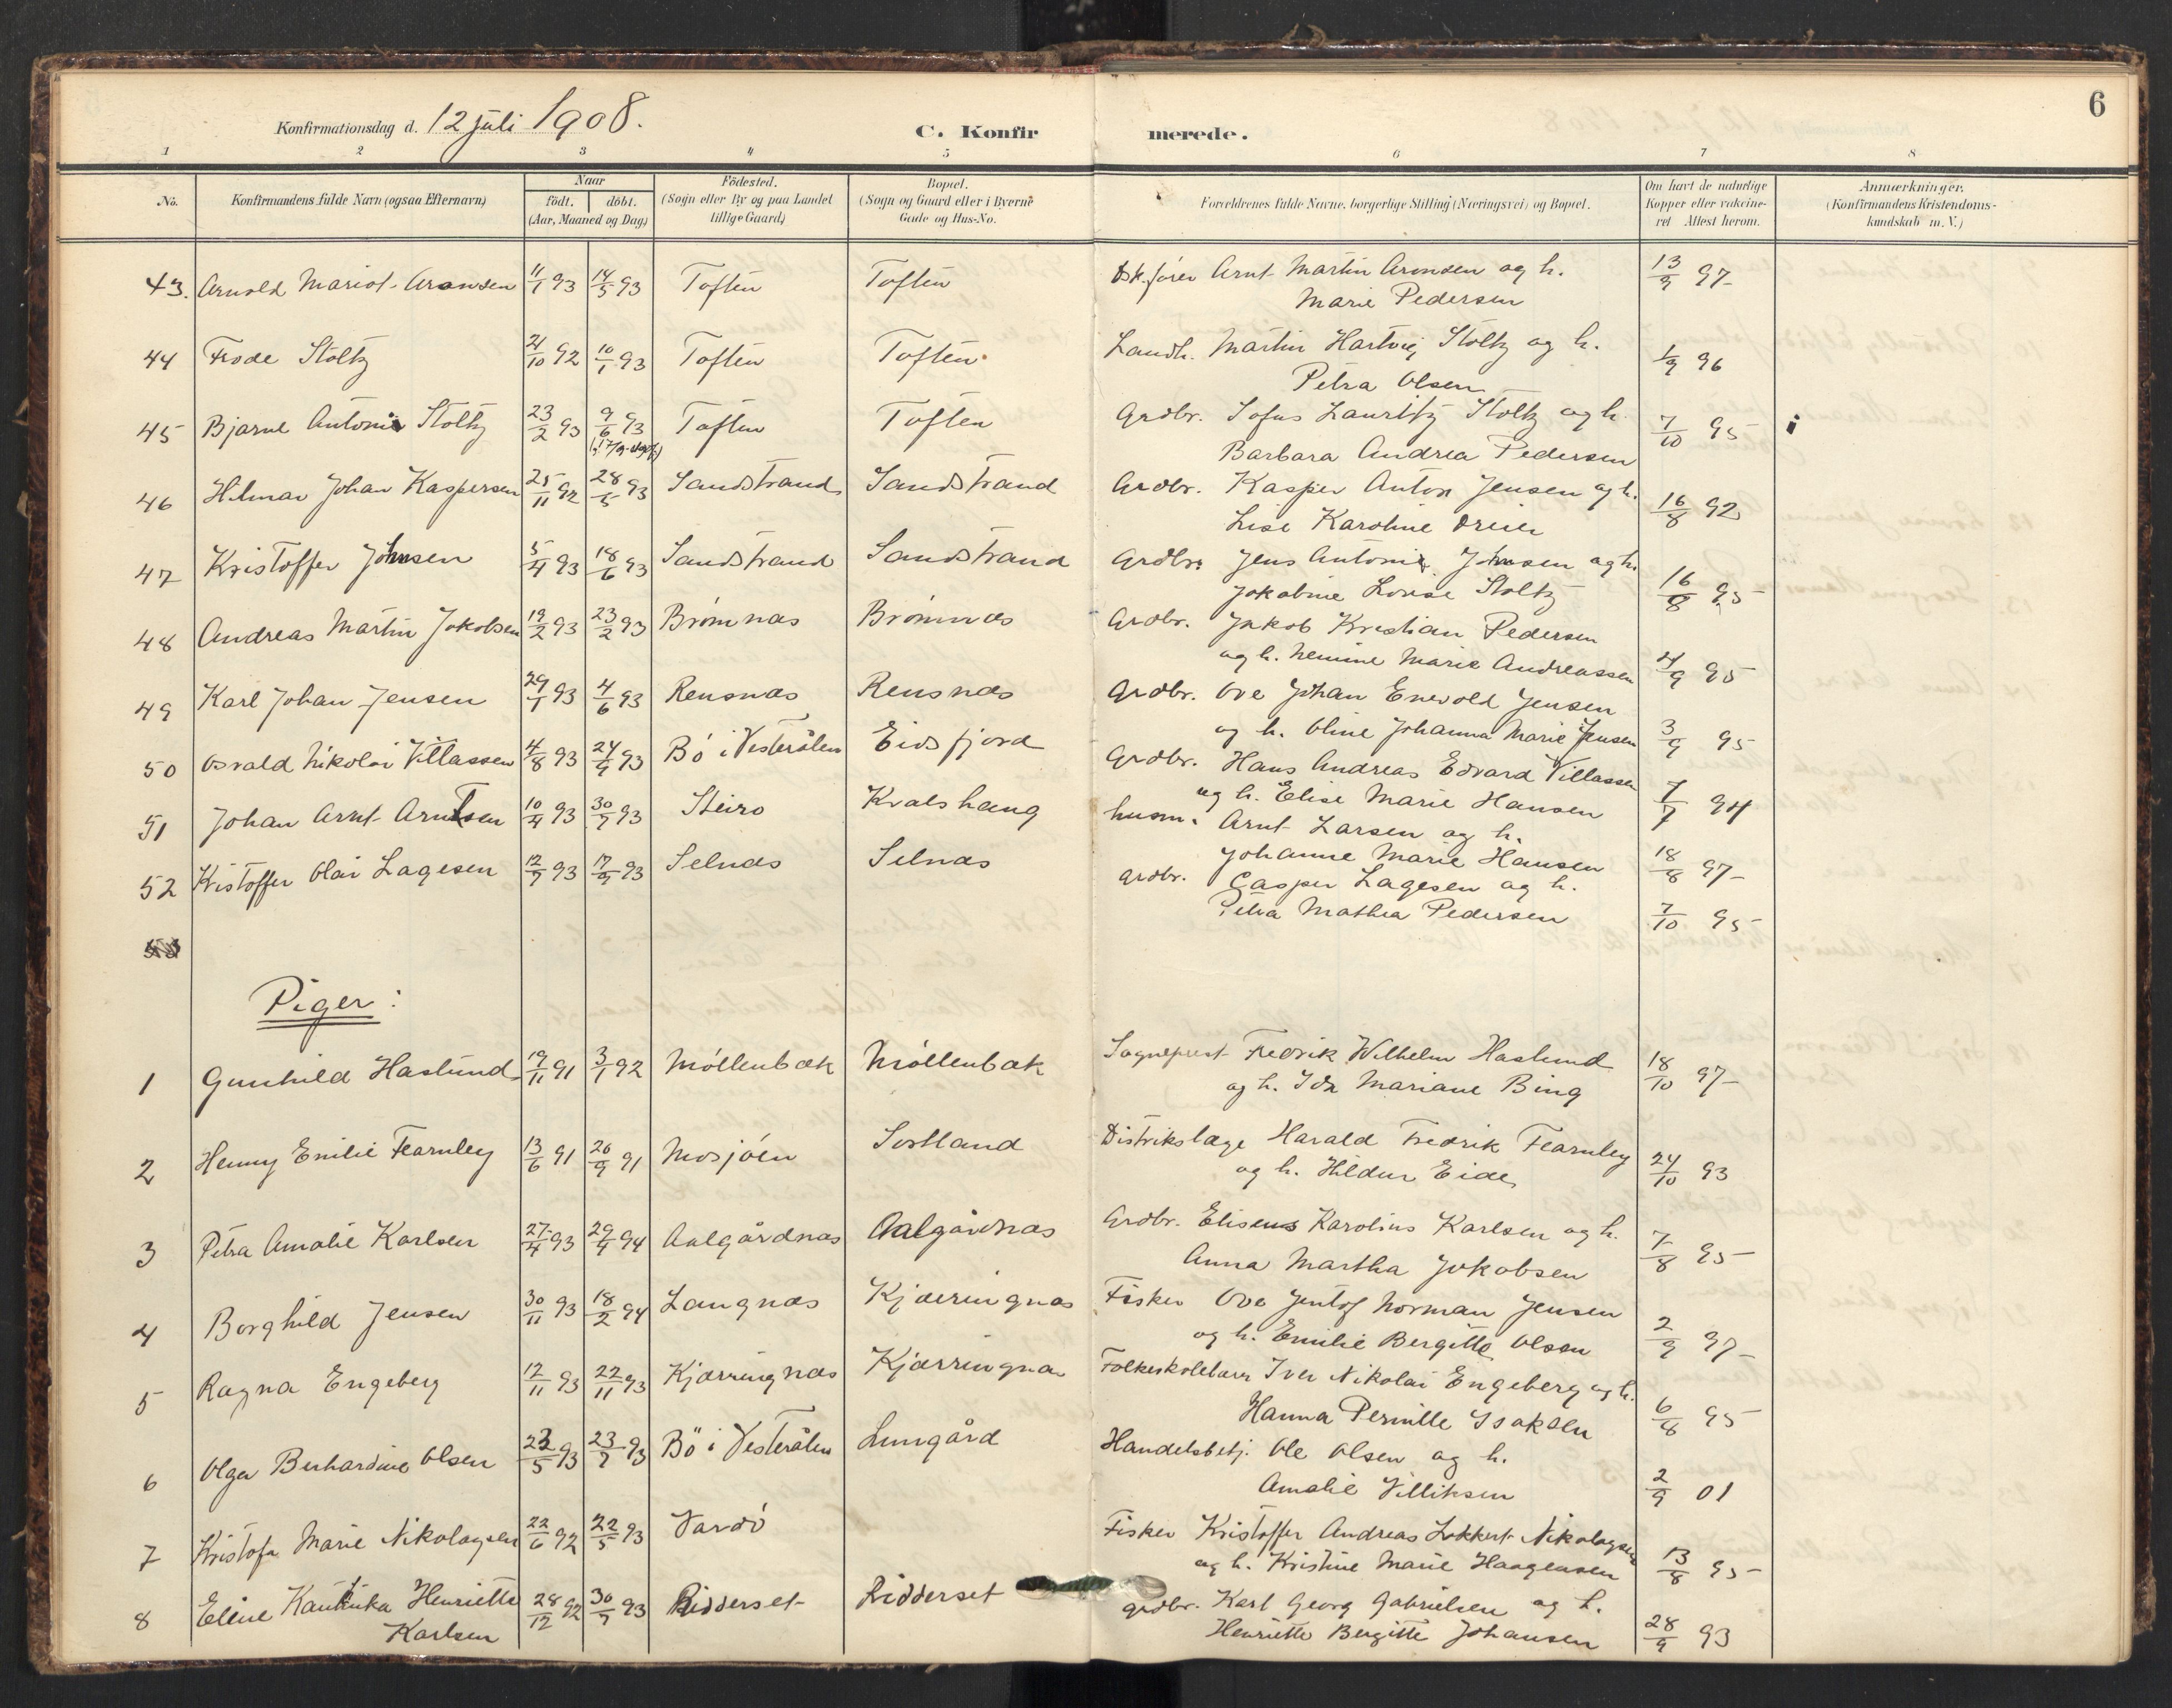 6
Konfirmationsdag d. 12 juli 1908.
C. Konfirmerede.
1 2 3 4 5 6 7 8
No. Konfirmandens fulde Navn (ogsaa Efternavn) Naar födt. döbt. (Aar, Maaned og Dag) Födested. (Sogn eller By og paa Landet tillige Gaard) Bopæl. (Sogn og Gaard eller i Byerne Gade og Hus-No. Forældrenes fulde Navne, borgerlige Stilling (Næringsvei) og Bopæl. Om havt de naturlige Kopper eller vakcineret Attest herom. Anmærkninger. (Konfirmandens Kristendomskundskab m. V.)
43. Arnold Mariot Aronsen 11/1 93 14/5 93 Toften Toften Arnt Martin Aronsen og h. 13/9 97
Marie Pedersen
44 Frode Stoltz 21/10 92 10/1 93 Toften Toften. Landh. Martin Hartvig Stoltz og h. 1/9 96
Petra Olsen
45 Bjarne Antoni Stoltz 23/2 93 9/6 93 Toften Toften Grdbr. Sofus Lauritz Stoltz og h. 7/10 95
Barbara Andrea Pedersen
46 Hilmar Johan Kaspersen 25/11 92 28/5 93 Sandstrand Sandstrand Grdbr. Kasper Anton Jensen og h. 16/8 92
Lise Karoline Dreier
47 Kristoffer Johnsen 5/4 93 18/6 93 Sandstrand Sandstrand Grdbr. Jens Antoni Johnsen og h. 16/8 95
Jokobine Lovise Stoltz
48 Andreas Martin Jokobsen 19/2 93 23/2 93 Brømnæs Brømnæs Grdbr. Jakob Kristian Pedersen
og h. Nemine Marie Andreassen 4/9 95
49 Karl Johan Jensen 29/1 93 4/6 93 Rensnæs Rensnæs Grdbr. Ove Johan Enevold Jensen
og h. Oline Johanna Marie Jensen 3/9 95
50 Osvald Nikolai Villassen 4/8 93 24/9 93 Bö i Vesterålen Eidsfjord Grdbr. Hans Andreas Edvard Villassen
og h. Elise Marie Hansen 7/7 94
51 Johan Arnt Arntsen 10/4 93 30/7 93 Steiro Kvalshaug husm. Arnt Larsen og h.
Johanne Marie Hansen 18/8 97
52 Kristoffer Olai Lagesen 12/7 93 17/9 93 Selnæs Selnæs Grdbr. Casper Lagesen og h.
Petra Mathea Pedersen 7/10 95
53
Piger:
1 Gunhild Haslund 19/11 91 3/1 92 Møllenbæk Møllenbæk Sognepræst Fredrik Wilhelm Haslund 18/10 97
og h. Ida Mariane Bing
2 Henny Emilie Fearnley 13/6 91 20/9 91 Mosjöen Sortland Distrikslæge Harald Fredrik Fearnley 24/10 93
og h. Hildur Eide
3 Petra Amalie Karlsen 27/4 93 29/4 94 Aalgårdnæs Aalgårdnæs Grdbr. Eliseus Karolius Karlsen og h. 7/8 95
Anna Martha Jokobsen
4 Borghild Jensen 30/11 93 18/2 94 Langnæs Kjæringnæs Fisker Ove Jentof Norman Jensen 2/9 97
og h. Emilie Bergitte Olsen
5 Ragna Engeberg 12/11 93 22/11 93 Kjærringnæs Kjærringnæs Folkeskolelærer Iver Nikolai Engeberg og h. 6/8 95
Hanna Pernille Isaksen
6 Olga Berhardine Olsen 22/5 93 23/7 93 Bö i Vesterålen Lungård Handelsbetj. Ole Olsen og h. 2/9 01
Amalie Villiksen
7 Kristofa Marie Nikolaysen 22/6 92 22/5 93 Vardö Fisker Kristoffer Andreas Lokkert Nikolaysen 13/8 95
og h. Kristine Marie Haagensen
8 Eline Kathinka Henriette 28/12 92 30/7 93 Ridderset Ridderset grdbr. Karl Georg Gabrielsen og h. 28/9 93
Karlsen Henriette Bergitte Johansen